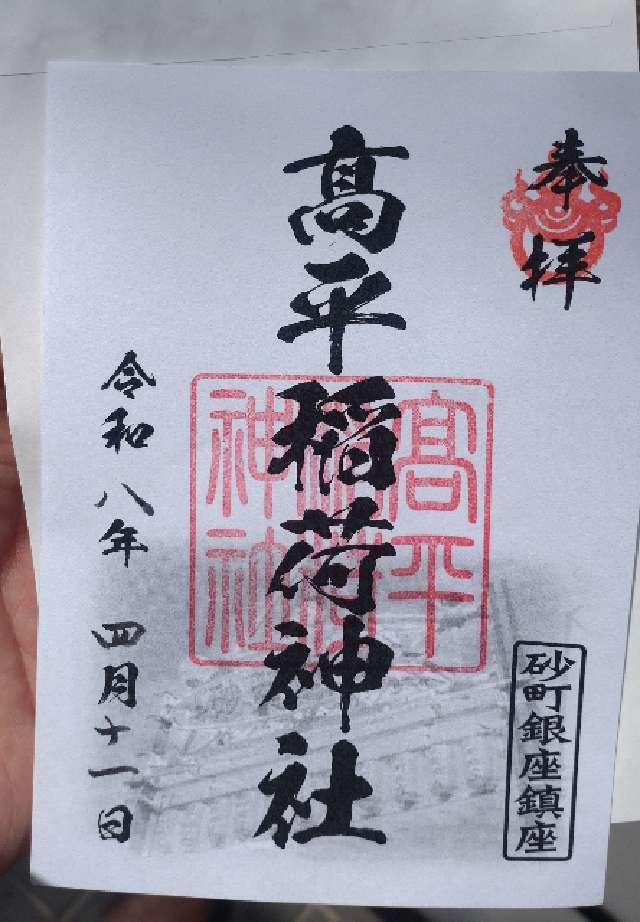 奉拝
髙平稲荷神社
髙平
稲荷
神社
砂町銀座鎮座
令和八年 四月十一日